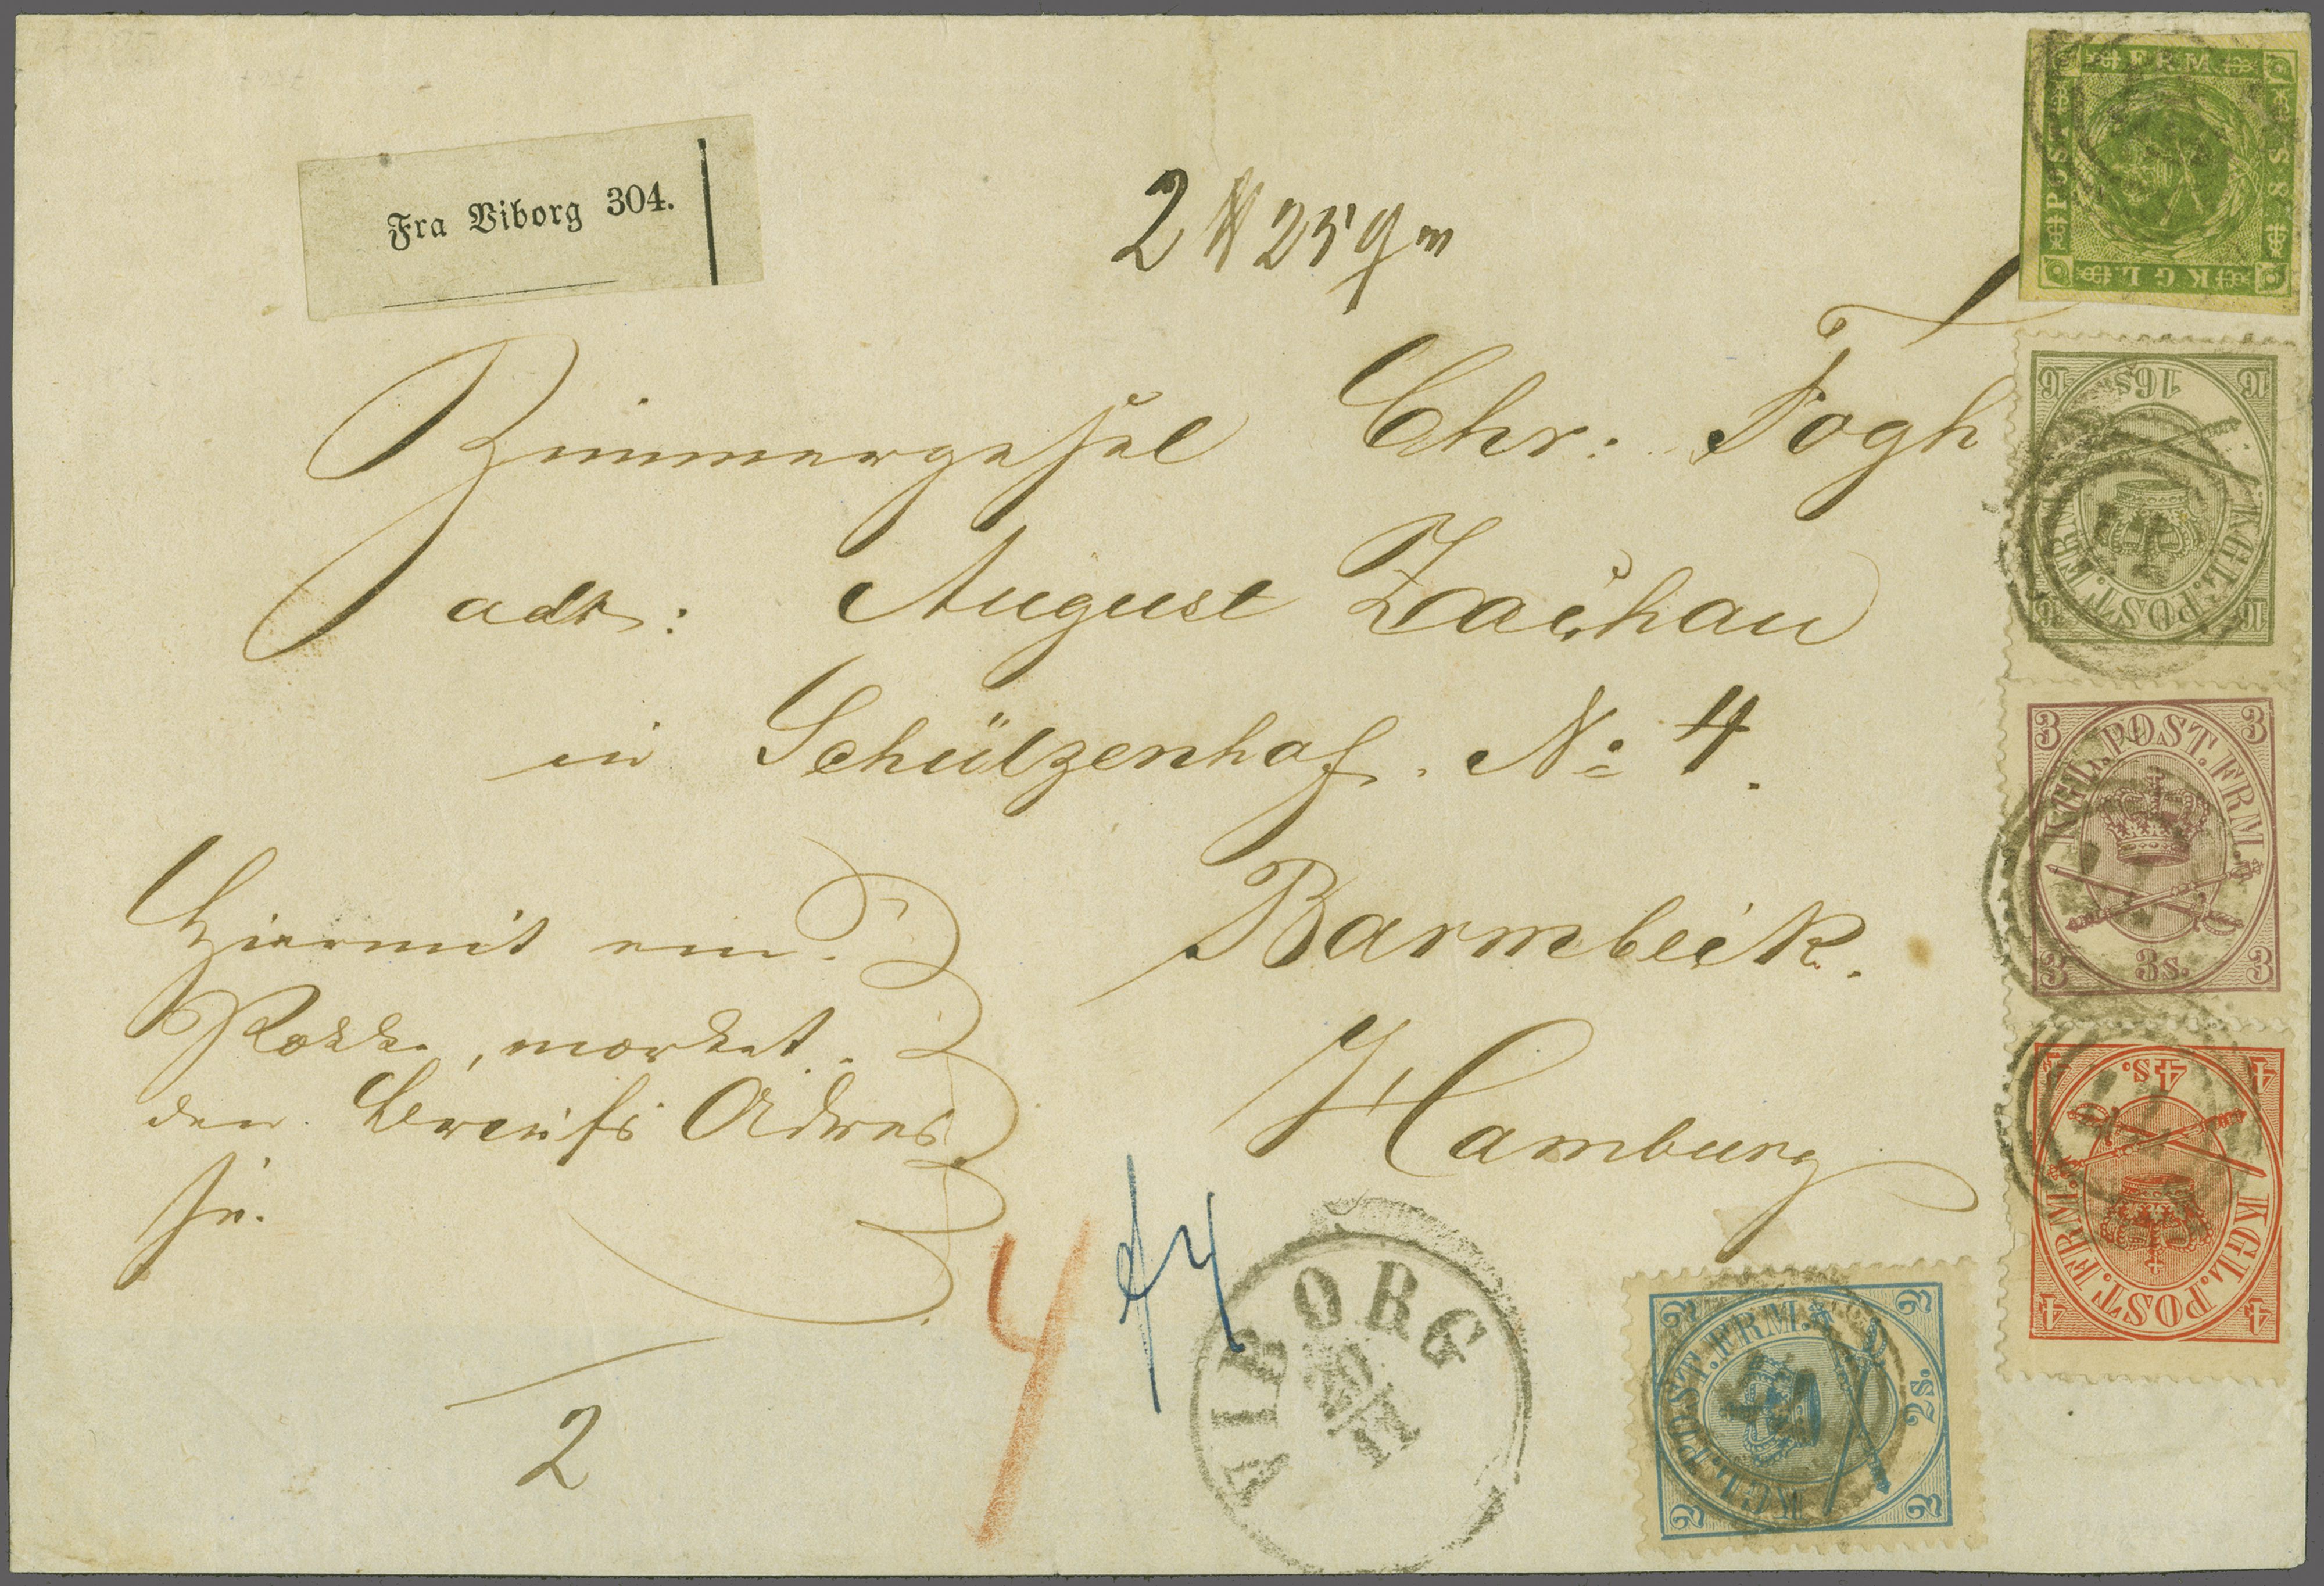 Fra Viborg 304.
2 ℔ 25 qm
Zimmergesel Chr: Fogh
adr: August Zachau
in Schützenhof. No 4.
Barmbeik.
Hamburg
Hiermit ein
Pakke, market
den Adres
se.
2
4
VIBORG
KGL. POST. FRM.
8 S
16 16
16 S
KGL. POST. FRM.
16 16
3 3
KGL. POST. FRM.
3 3s. 3
4 4s. 4
KGL. POST. FRM.
4 4
2 2
KGL. POST. FRM. 2s.
2 2